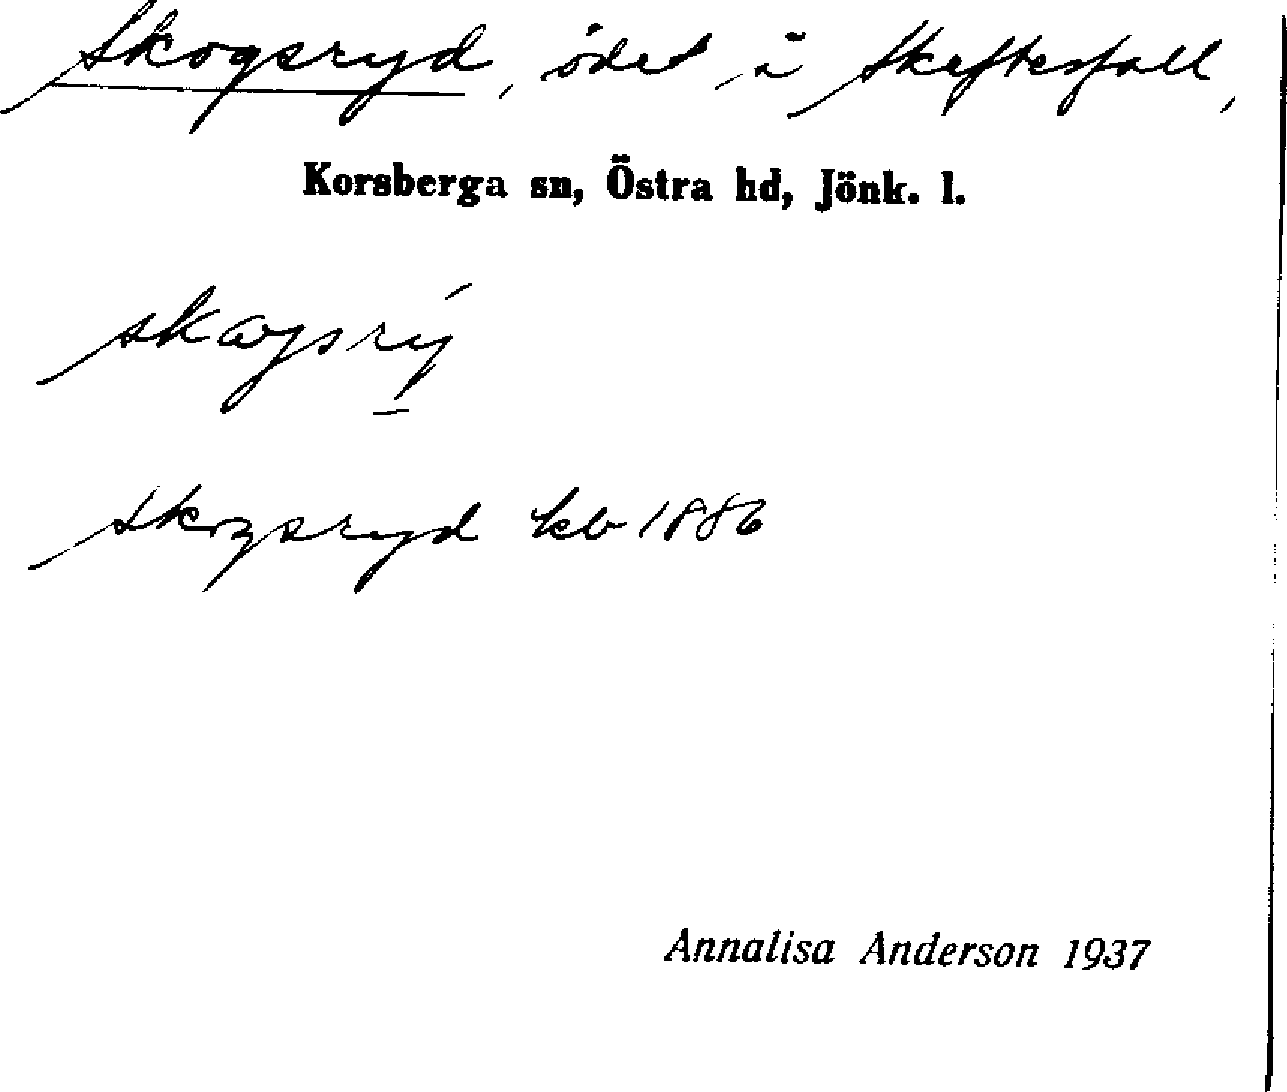 Skogsryd, ödet, i Skeftesfall,
Korsberga sn, Östra hd, Jönk. l.
Skogsryd kb 1886
Annalisa Anderson 1937